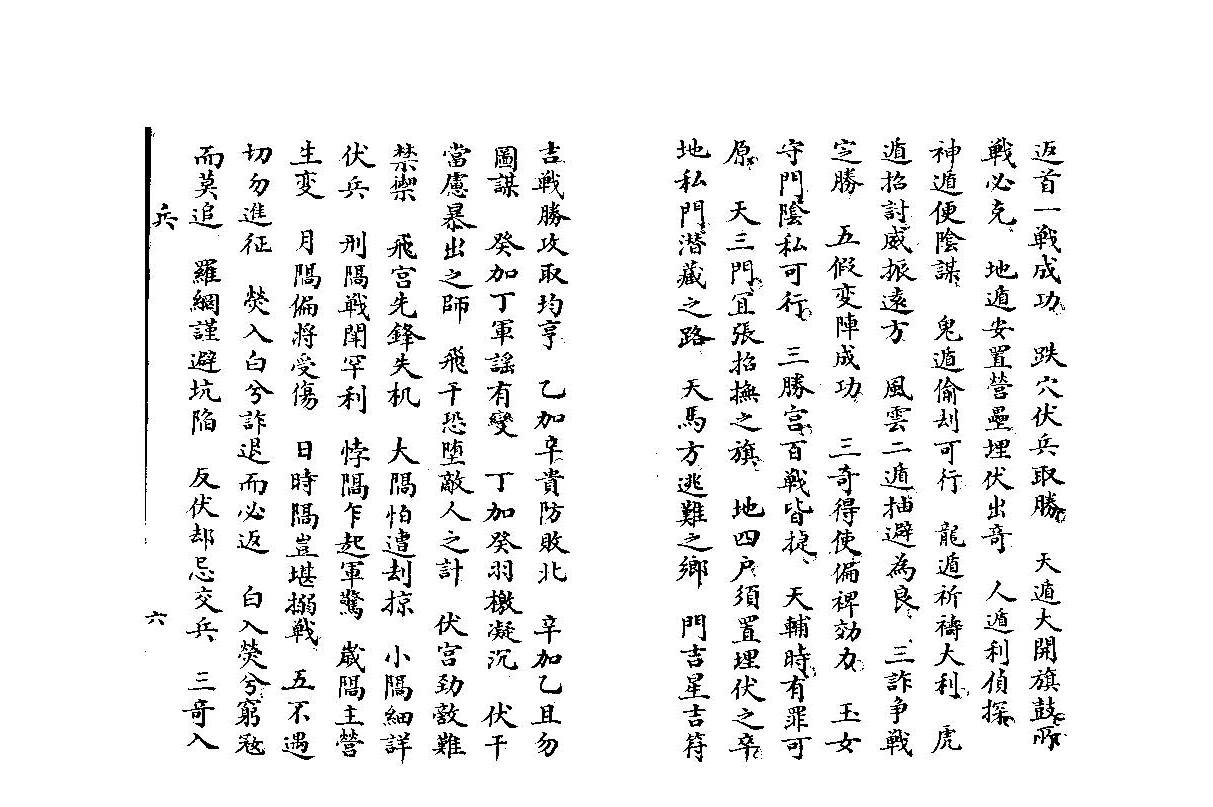 返首一戰成功　跌穴伏兵取勝　天遁大開旗鼓所
戰必克　地遁安置營壘埋伏出奇　人遁利偵探
神遁便陰謀　鬼遁偷刦可行　龍遁祈禱大利　虎
遁招討威振遠方　風雲二遁揷避為良　三詐争戰
定勝　五假变陣成功　三奇得使偏裨効力　玉女
守門陰私可行　三勝宮百戰皆捷　天輔時有罪可
原　天三門宜張招撫之旗　地四户須置埋伏之卒
地私門潛藏之路　天馬方逃難之鄉　門吉星吉符
吉戰勝攻取均亨　乙加辛貴防敗北　辛加乙且勿
圖謀　癸加丁軍謡有變　丁加癸羽檄凝沉　伏干
當慮暴出之師　飛干恐堕敵人之計　伏宮勁敵難
禁禦　飛宮先鋒失机　大隔怕遭刦掠　小隔細詳
伏兵　刑隔戰閗罕利　悖隔乍起軍驚　歲隔主營
生变　月隔偏將受傷　日時隔豈堪搦戰　五不遇
切勿進征　熒入白兮詐退而必返　白入熒兮窮冦
而莫追　羅網謹避坑陷　反伏却忌交兵　三奇入
兵　六